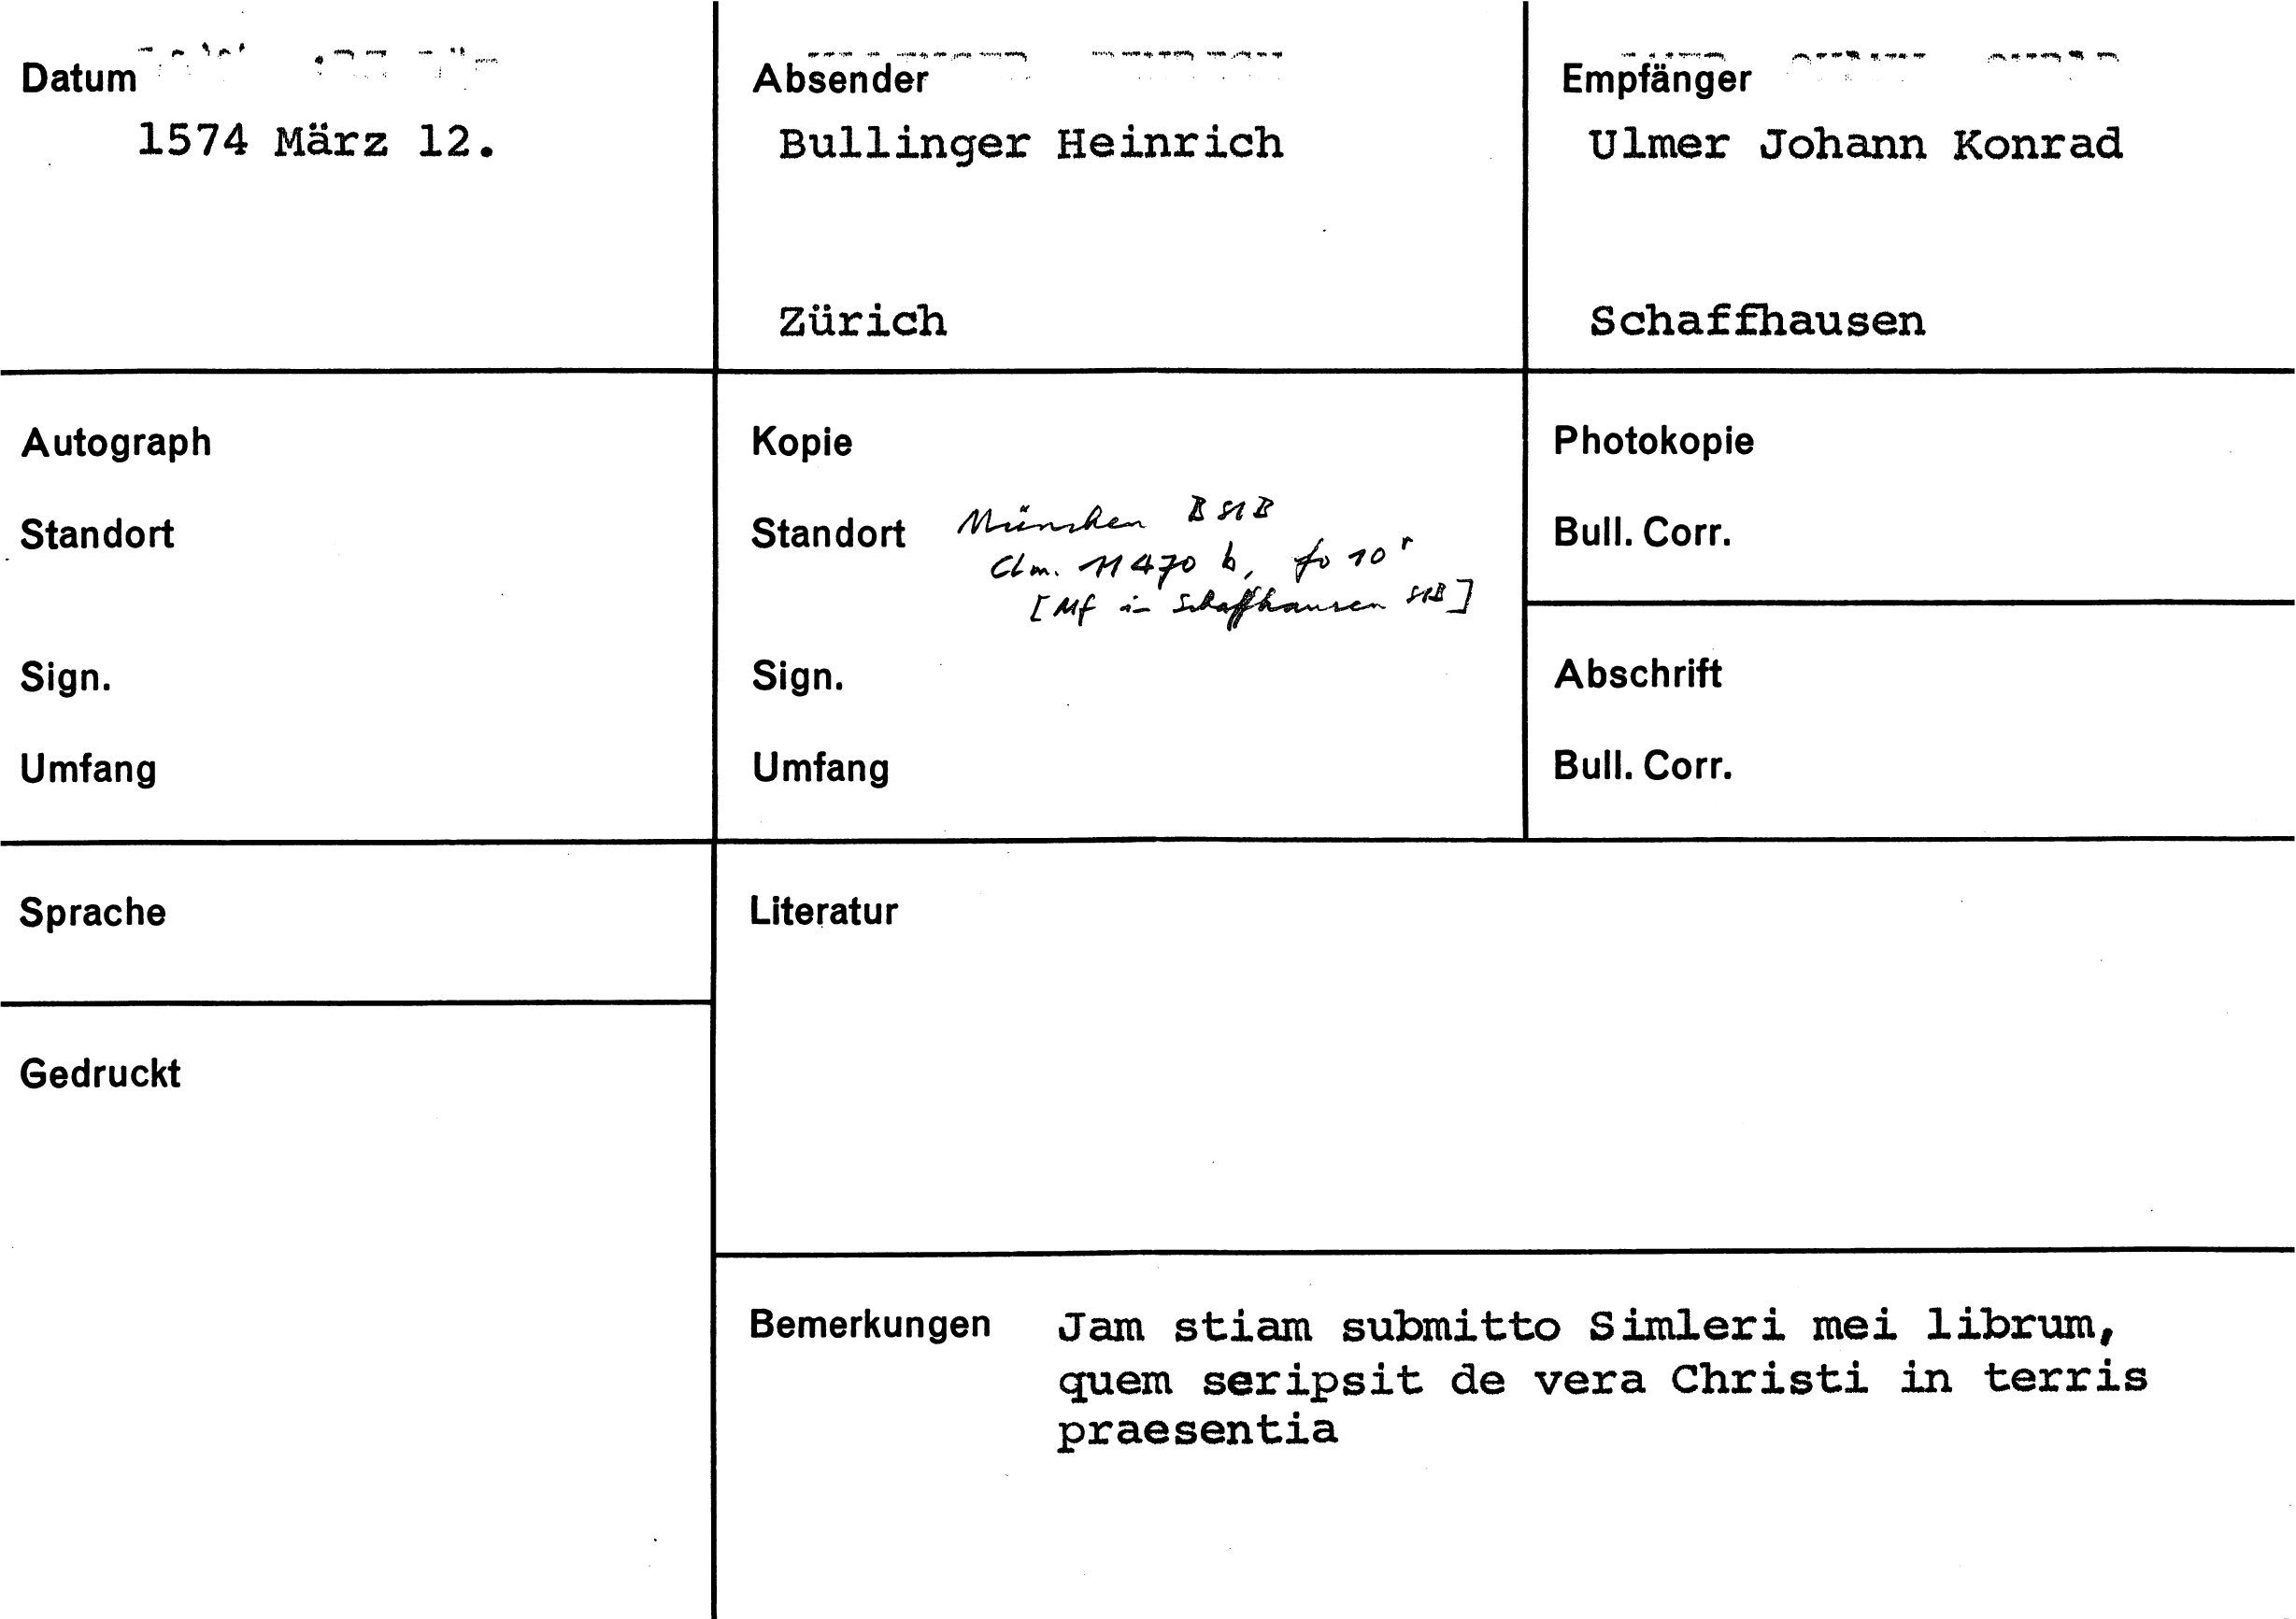 Datum
1574 März 12.
Absender
Bullinger Heinrich
Zürich
Empfänger
Ulmer Johann Konrad
Schaffhausen
Autograph
Standort
Sign.
Umfang
Kopie
Standort München BStB
Clm. 11470 b, fo 10r
[Mf in Schaffhausen StB]
Sign.
Umfang
Photokopie
Bull. Corr.
Abschrift
Bull. Corr.
Sprache
Gedruckt
Literatur
Bemerkungen Jam stiam submitto Simleri mei librum,
quem seripsit de vera Christi in terris
praesentia